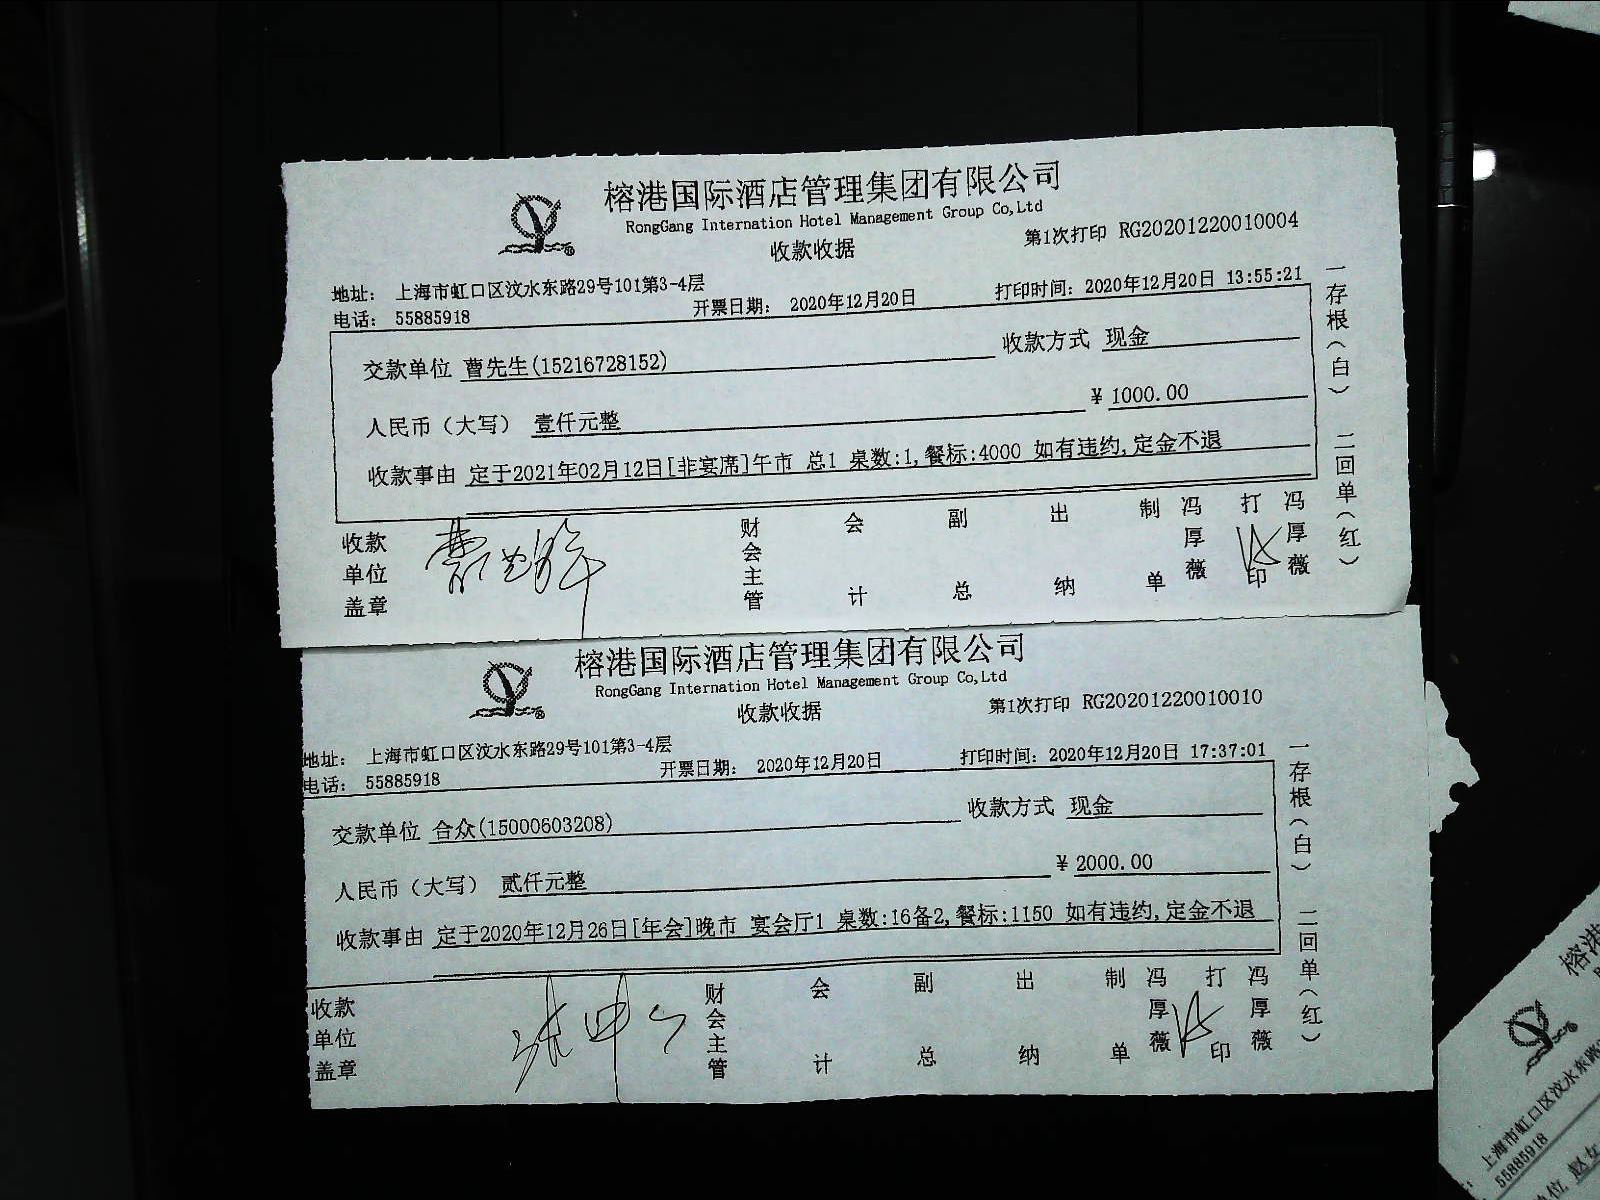 榕港国际酒店管理集团有限公司
RongGang Internation Hotel Management Group Co,Ltd
收款收据
第1次打印 RG20201220010004
地址： 上海市虹口区汶水东路29号101第3-4层
电话： 55885918
开票日期： 2020年12月20日
打印时间：2020年12月20日 13:55:21
交款单位 曹先生(15216728152)
收款方式 现金
人民币（大写） 壹仟元整
¥ 1000.00
收款事由 定于2021年02月12日[非宴席]午市 总1 桌数:1,餐标:4000 如有违约,定金不退
收款单位盖章
财会主管
会计
副总
出纳
制单
冯厚薇
打印
冯厚薇
一存根（白） 二回单（红）
榕港国际酒店管理集团有限公司
RongGang Internation Hotel Management Group Co,Ltd
收款收据
第1次打印 RG20201220010010
地址： 上海市虹口区汶水东路29号101第3-4层
电话： 55885918
开票日期： 2020年12月20日
打印时间：2020年12月20日 17:37:01
交款单位 合众(15000603208)
收款方式 现金
人民币（大写） 贰仟元整
¥ 2000.00
收款事由 定于2020年12月26日[年会]晚市 宴会厅1 桌数:16备2,餐标:1150 如有违约,定金不退
收款单位盖章
财会主管
会计
副总
出纳
制单
冯厚薇
打印
冯厚薇
一存根（白） 二回单（红）
榕港
上海市虹口区汶水东路
55885918
位 赵女